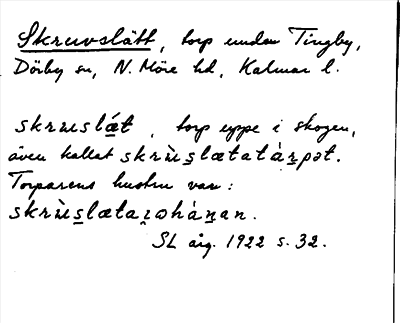 Skruvslätt, torp under Tingby,
Dörby sn, N. Möre hd, Kalmar l.
skrɯslǽt, torp uppe i skogen,
även kallat skrɯ̀s̱lætatàṟpət.
Torparens hustru var:
skrɯ̀s̱læta̱ʐohàṉan.
SL åig. 1922 s. 32.